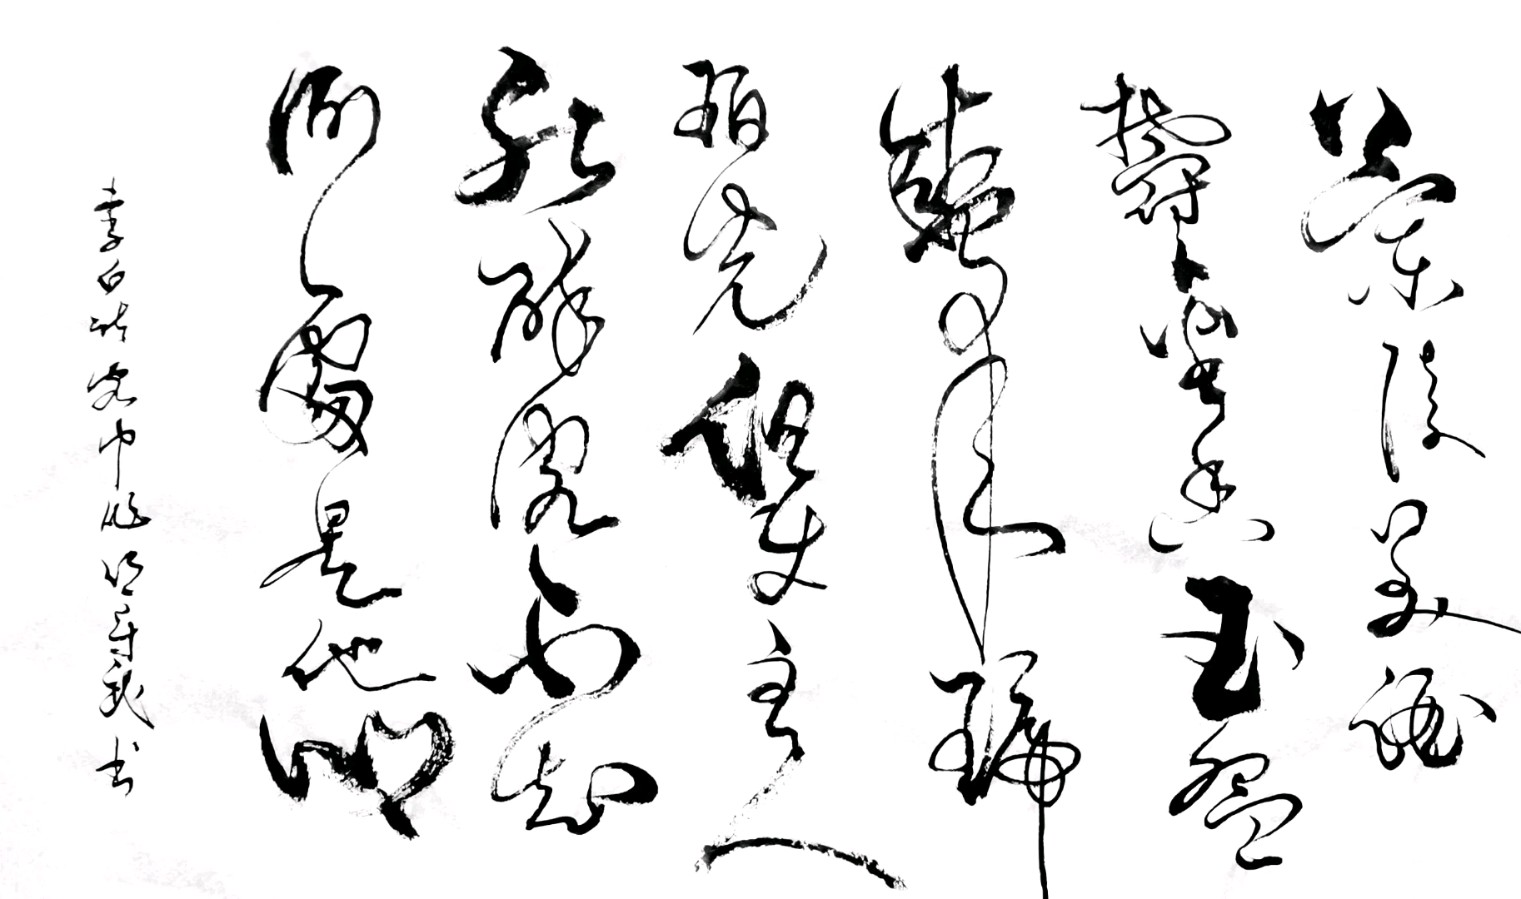 蘭陵美酒
鬱金香玉盌
盛來琥
珀光但使主人
能醉客不知
何處是他鄉
李白诗客中作 书